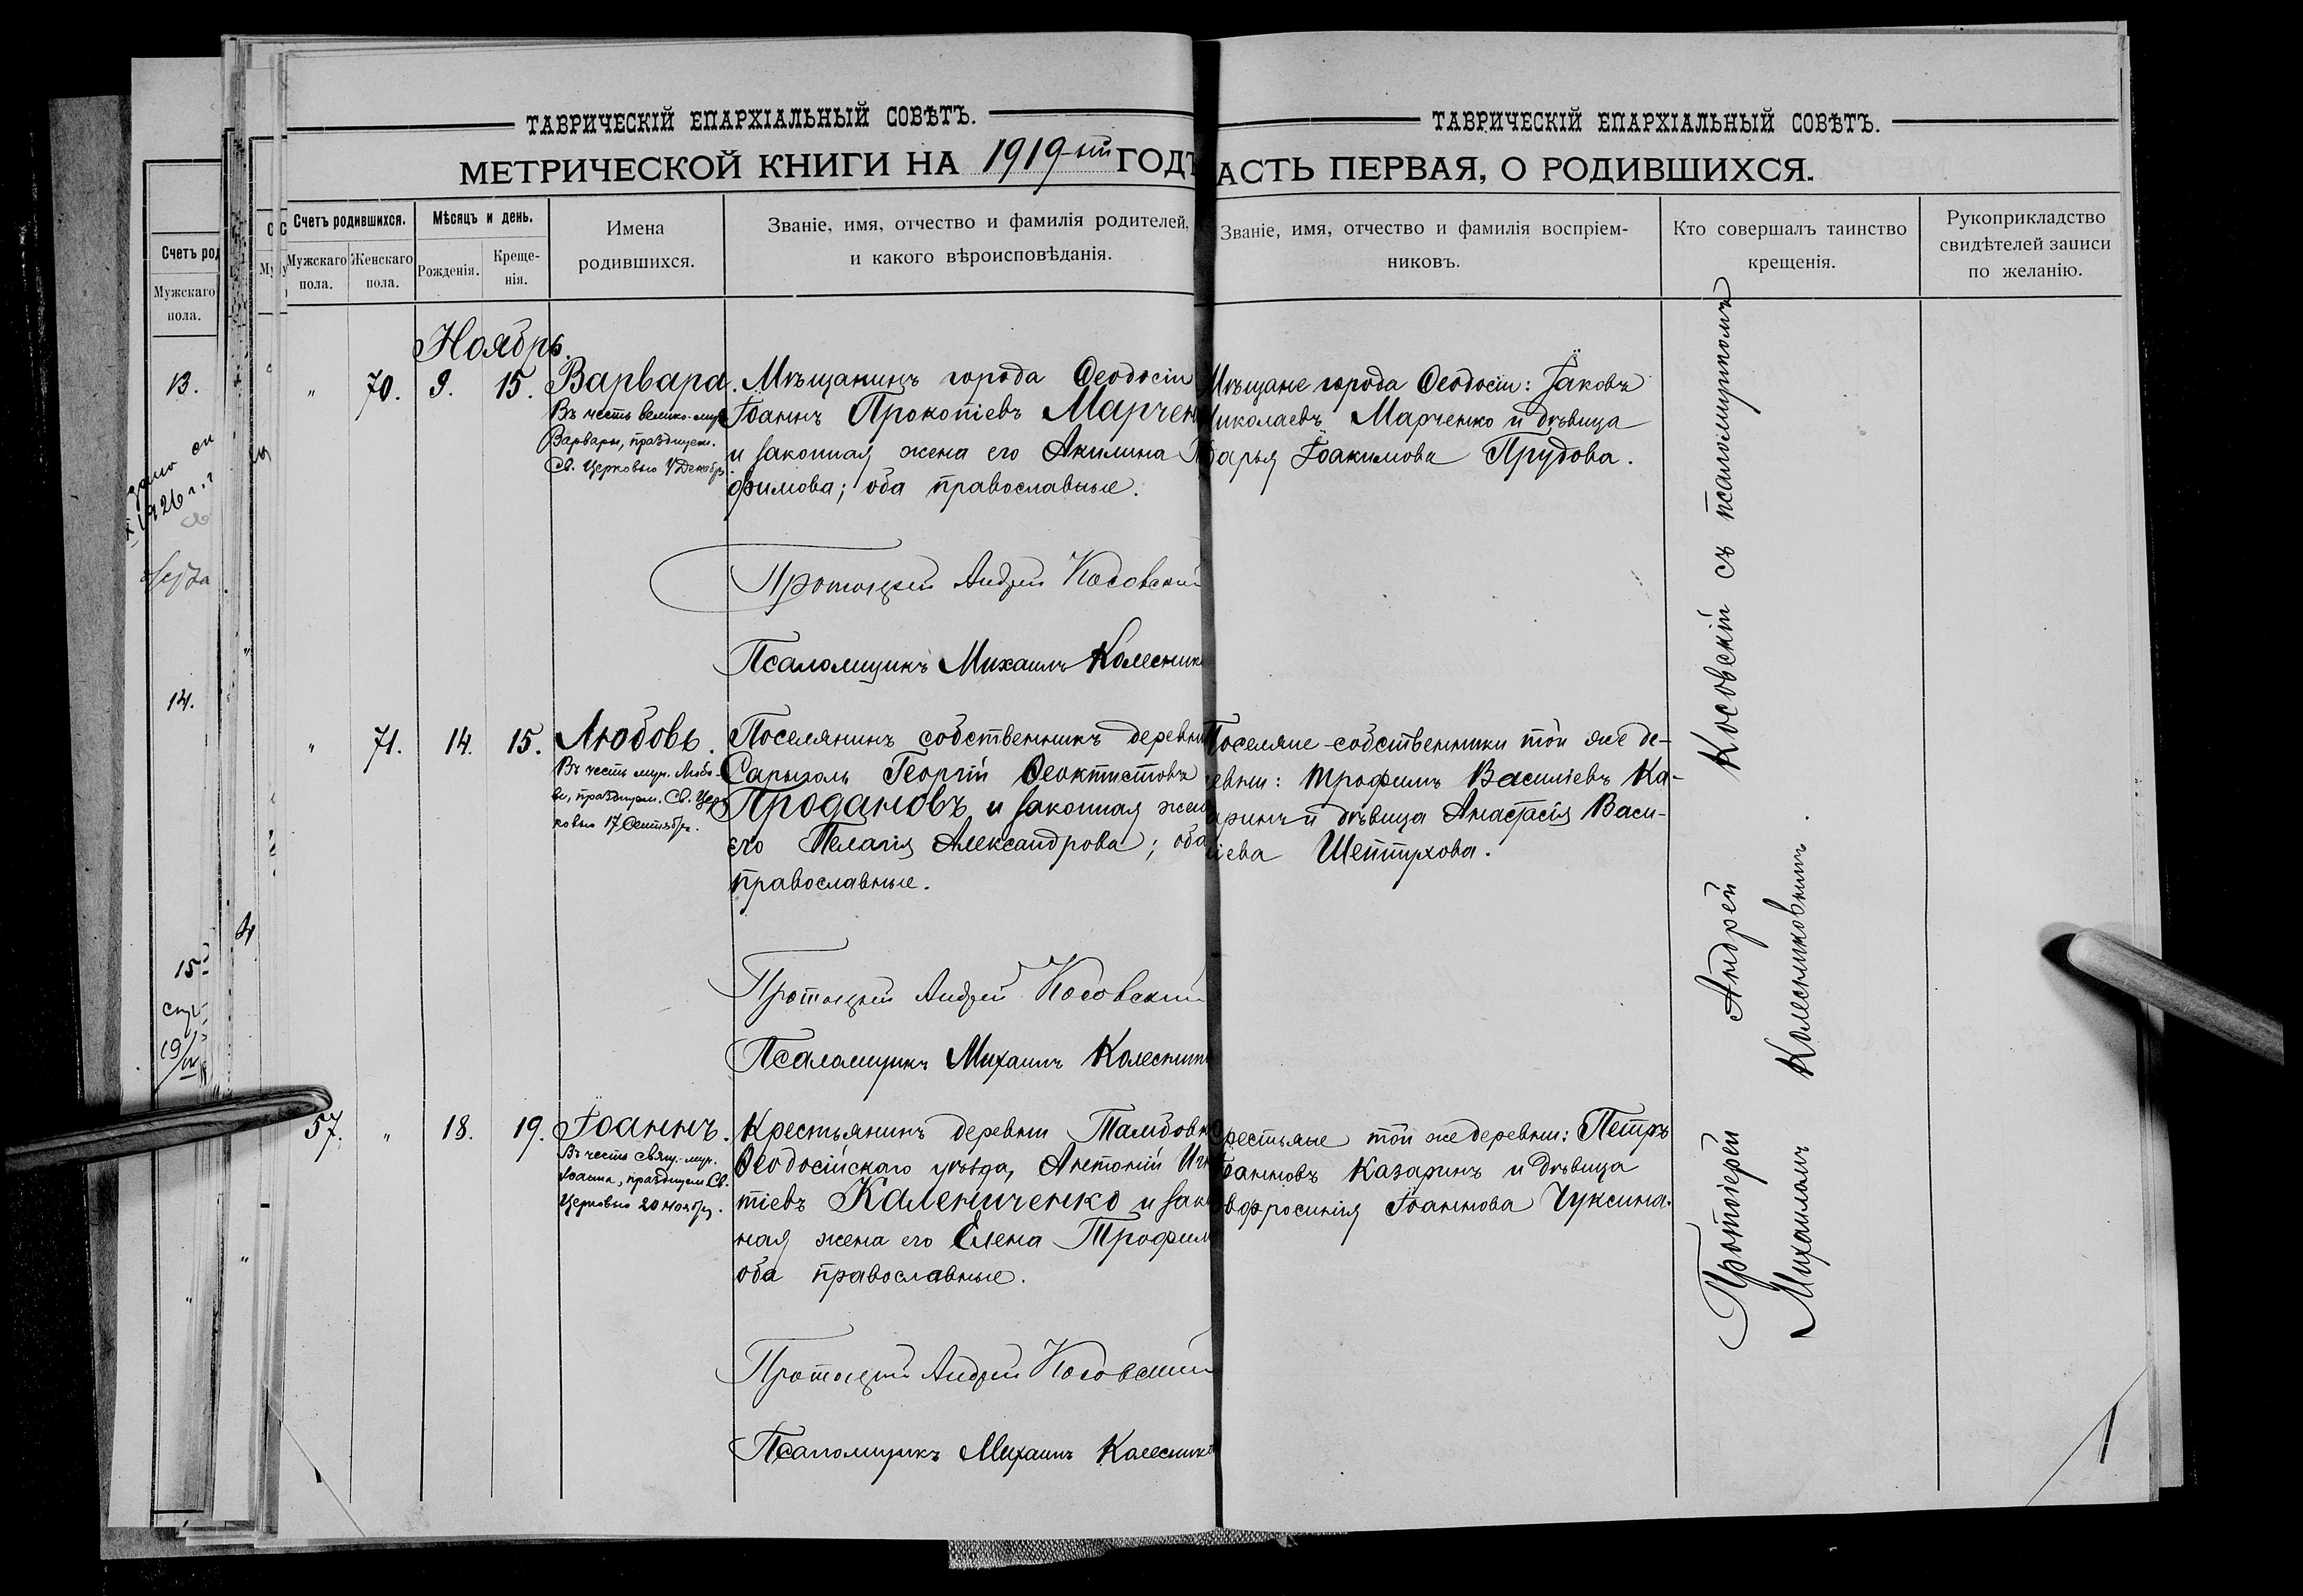 ТАВРИЧЕСКІЙ ЕПАРХІАЛЬНЫЙ СОВѢТЪ.
МЕТРИЧЕСКОЙ КНИГИ НА 1919-ый ГОДЪ
Счетъ родившихся.
Мужскаго пола.
Женскаго пола.
Мѣсяцъ и день.
Рожденія.
Креще-
нія.
Имена
родившихся.
Званіе, имя, отчество и фамилія родителей,
и какого вѣроисповѣданія.
Ноябрь.
" 70. 9. 15.
Варвара.
Въ честь велико-муч.
Варвары, празднуем.
Св. Церковью 4 Декабр.
Мѣщанинъ города Ѳеодосіи
Іоаннъ Прокопіевъ Марчен
и законная жена его Акилина
фимова; оба православные.
Протоіерей Андрей Косовскій
Псаломщикъ Михаилъ Колесник
" 71. 14. 15.
Любовь.
Въ честь муч. Любо-
ви, празднуем. Св. Цер-
ковью 17 Сентябр.
Поселянинъ собственникъ деревни
Сарыголь Георгій Ѳеоктистовъ
Продановъ и законная жена
его Пелагія Александрова; оба
православные.
Протоіерей Андрей Косовскій
Псаломщикъ Михаилъ Колесник
57. " 18. 19.
Іоаннъ.
Въ честь свящ.-муч.
Іоанна, празднуем. Св.
Церковью 20 Ноября.
Крестьянинъ деревни Тамбовк
Ѳеодосійскаго уѣзда, Антоній Игн
тіевъ Калениченко и закон
ная жена его Елена Трофим
оба православные.
Протоіерей Андрей Косовскій
Псаломщикъ Михаилъ Колеснико
ТАВРИЧЕСКІЙ ЕПАРХІАЛЬНЫЙ СОВѢТЪ.
АСТЬ ПЕРВАЯ, О РОДИВШИХСЯ.
Званіе, имя, отчество и фамилія воспріем-
никовъ.
Кто совершалъ таинство
крещенія.
Рукоприкладство
свидѣтелей записи
по желанію.
Мѣщане города Ѳеодосіи: Іаковъ
Николаевъ Марченко и дѣвица
Дарья Іоакимова Прудова.
Поселяне-собственники той же де-
ревни: Трофимъ Василіевъ Ка-
аринъ и дѣвица Анастасія Васи-
ліева Шептухова.
Крестьяне той же деревни: Петръ
Іоанновъ Казаринъ и дѣвица
Евфросинія Іоаннова Чуксина.
Протоіерей Андрей Косовскій съ псаломщикомъ
Михаиломъ Колесниковымъ.
Счетъ род
Мужскаго
пола.
13.
14.
15